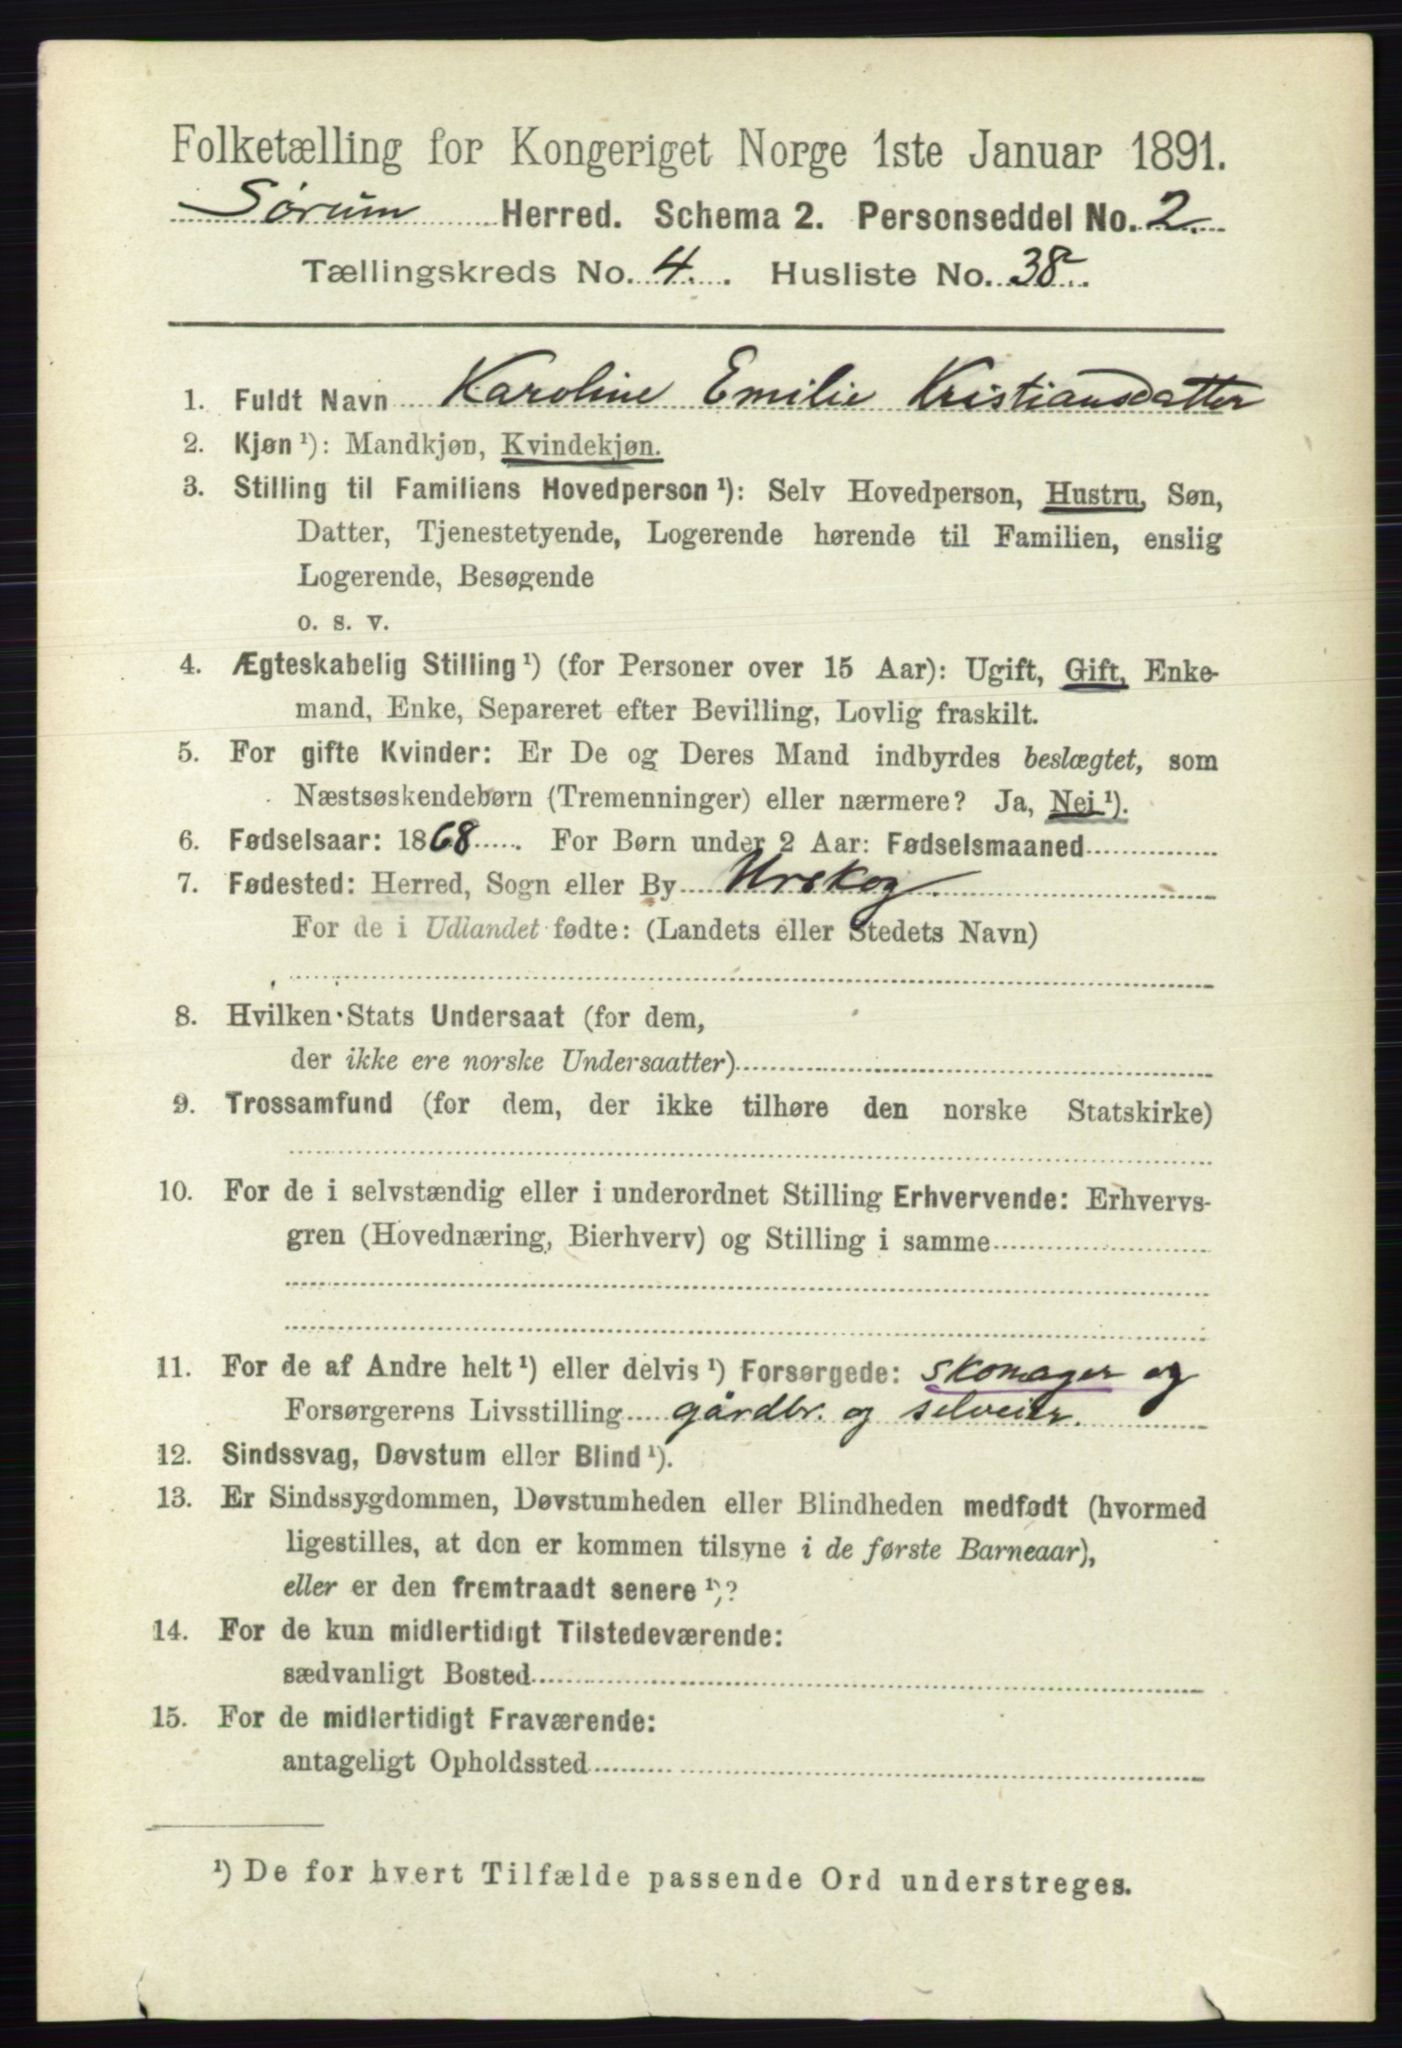 Folketælling for Kongeriget Norge 1ste Januar 1891.
Sørum Herred. Schema 2. Personseddel No. 2.
Tællingskreds No. 4. Husliste No. 38.
1. Fuldt Navn Karoline Emilie Kristiansdatter
2. Kjøn ¹): Mandkjøn, Kvindekjøn.
3. Stilling til Familiens Hovedperson ¹): Selv Hovedperson, Hustru, Søn,
Datter, Tjenestetyende, Logerende hørende til Familien, enslig
Logerende, Besøgende
o. s. v.
4. Ægteskabelig Stilling ¹) (for Personer over 15 Aar): Ugift, Gift, Enke-
mand, Enke, Separeret efter Bevilling, Lovlig fraskilt.
5. For gifte Kvinder: Er De og Deres Mand indbyrdes beslægtet, som
Næstsøskendebørn (Tremenninger) eller nærmere? Ja, Nei ¹).
6. Fødselsaar: 1868. For Børn under 2 Aar: Fødselsmaaned
7. Fødested: Herred, Sogn eller By Urskog.
For de i Udlandet fødte: (Landets eller Stedets Navn)
8. Hvilken Stats Undersaat (for dem,
der ikke ere norske Undersaatter)
9. Trossamfund (for dem, der ikke tilhøre den norske Statskirke)
10. For de i selvstændig eller i underordnet Stilling Erhvervende: Erhvervs-
gren (Hovednæring, Bierhverv) og Stilling i samme
11. For de af Andre helt ¹) eller delvis ¹) Forsørgede: skomager og
Forsørgerens Livsstilling gårdbr. og selveier.
12. Sindssvag, Døvstum eller Blind ¹).
13. Er Sindssygdommen, Døvstumheden eller Blindheden medfødt (hvormed
ligestilles, at den er kommen tilsyne i de første Barneaar),
eller er den fremtraadt senere ¹)?
14. For de kun midlertidigt Tilstedeværende:
sædvanligt Bosted
15. For de midlertidigt Fraværende:
antageligt Opholdssted
¹) De for hvert Tilfælde passende Ord understreges.